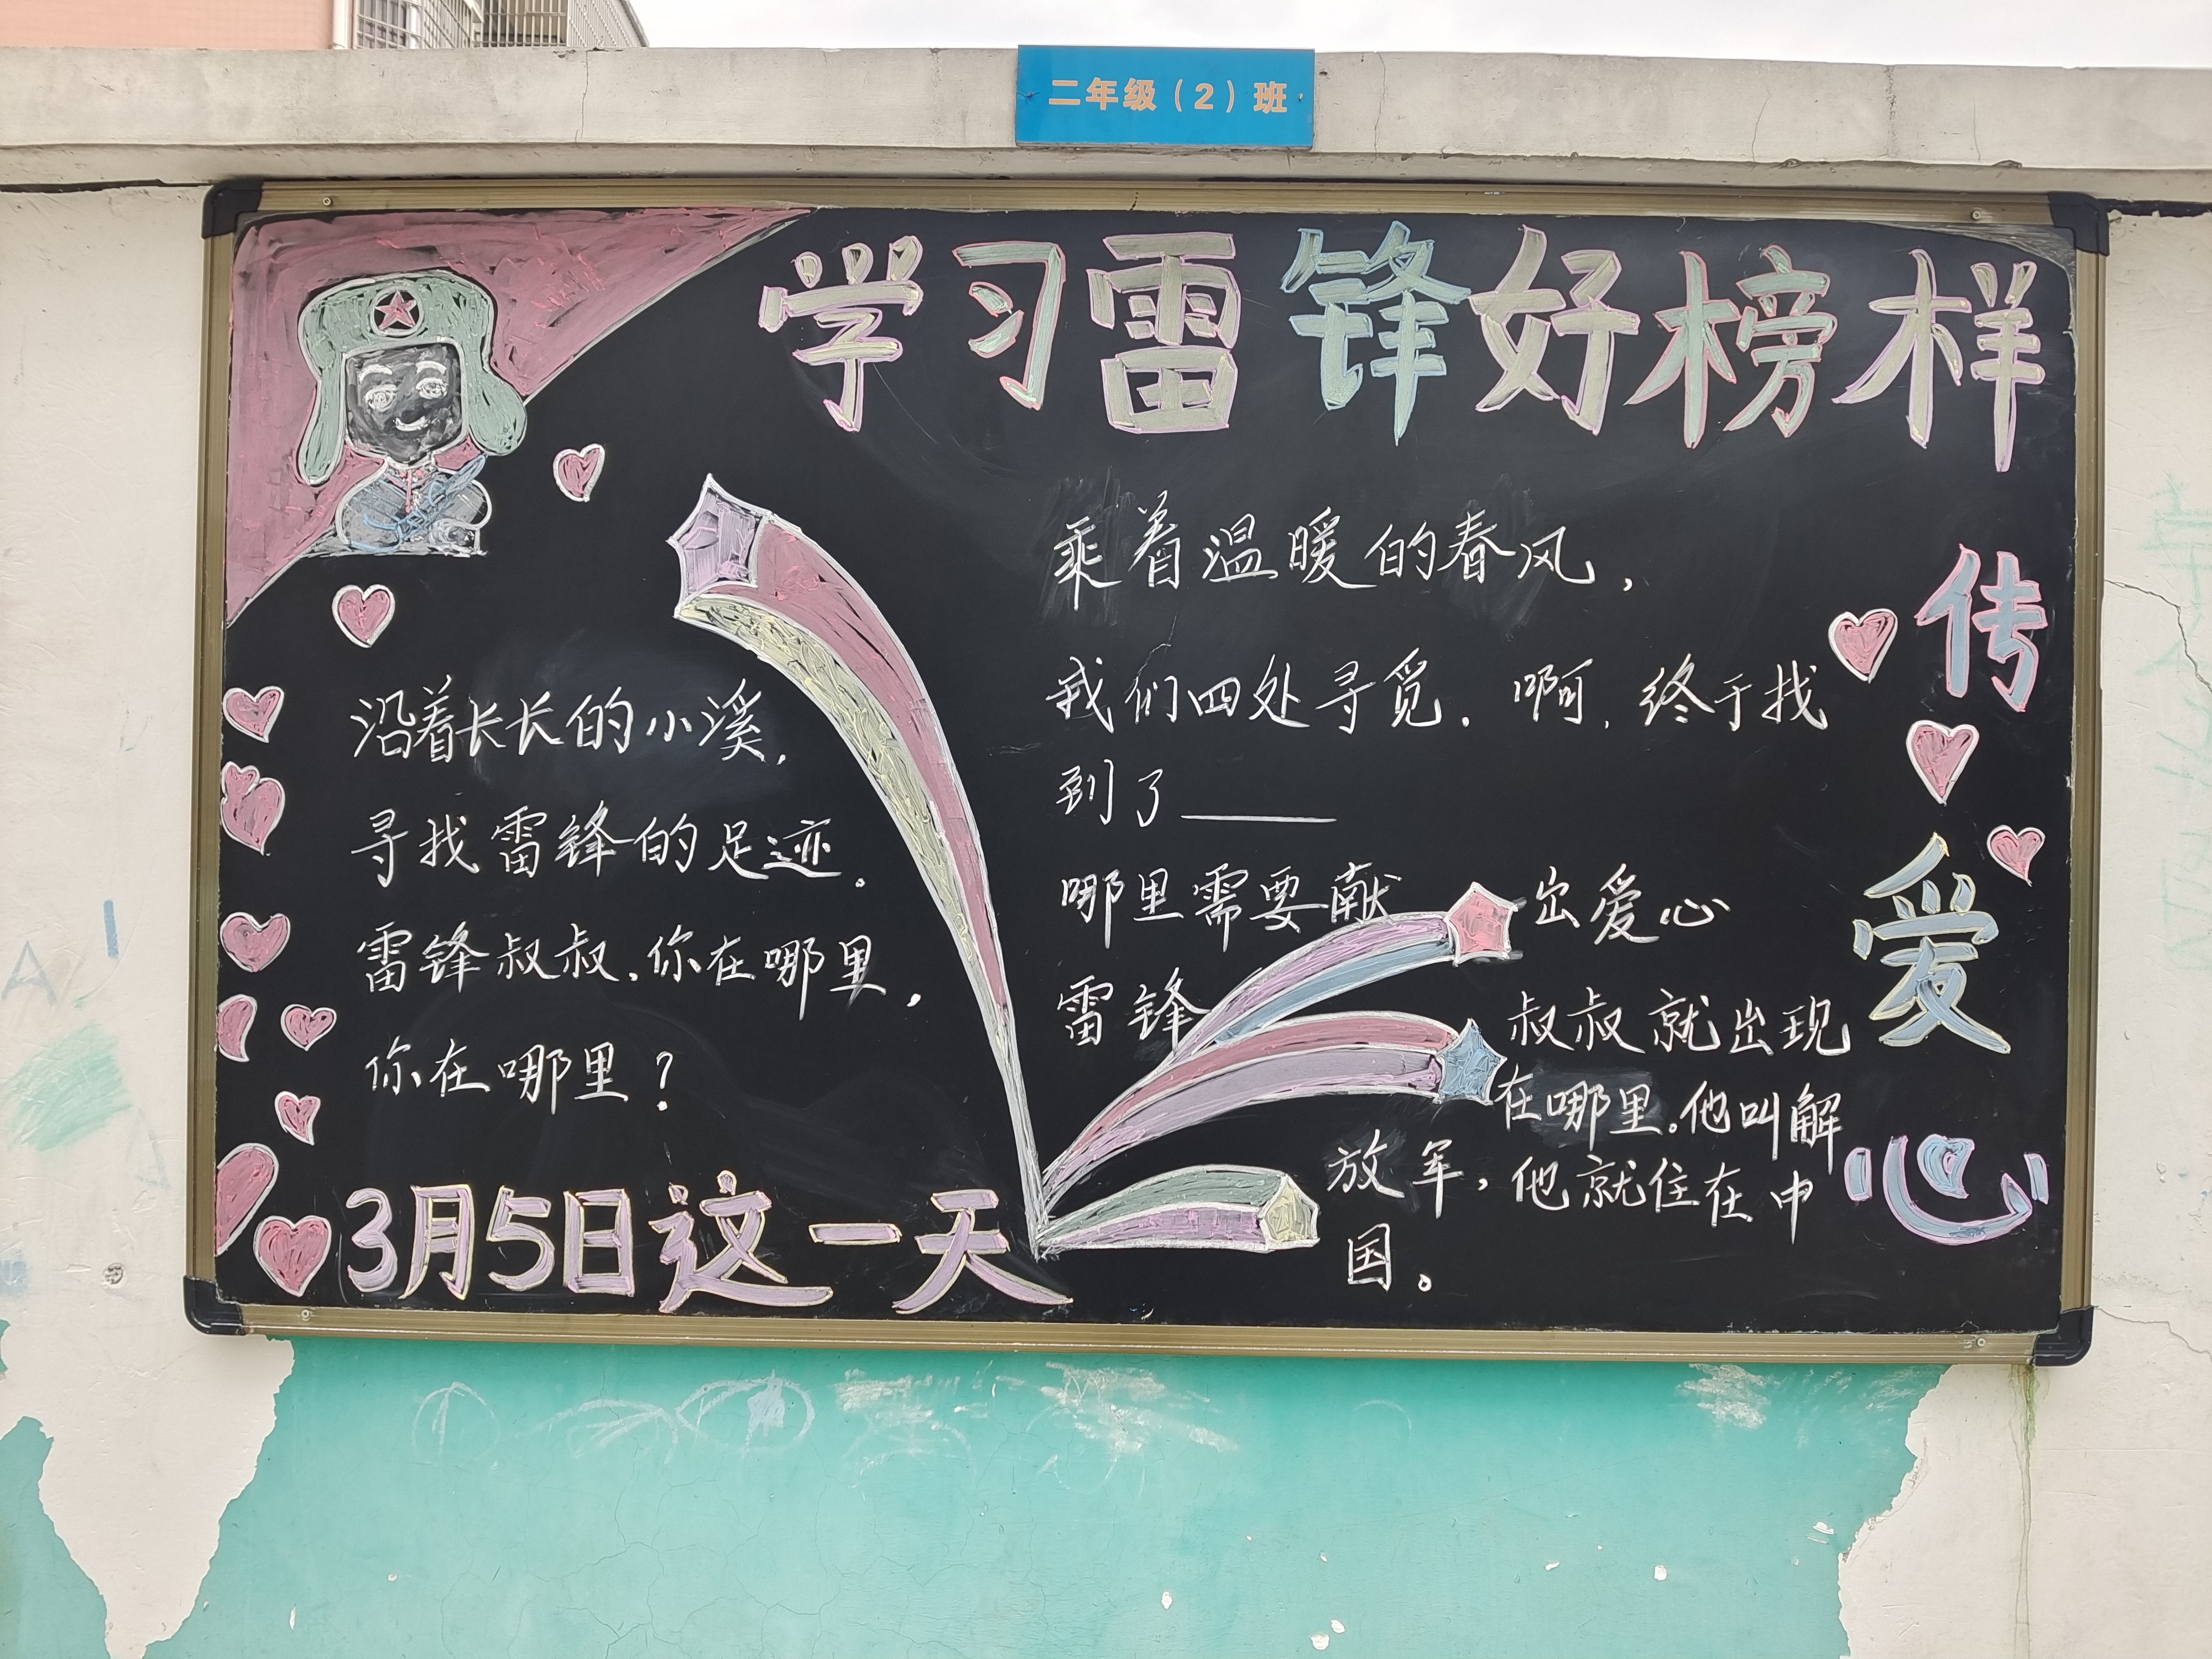 二年级（2）班
学习雷锋好榜样
沿着长长的小溪，
寻找雷锋的足迹。
雷锋叔叔，你在哪里，
你在哪里？
3月5日这一天
乘着温暖的春风，
我们四处寻觅．啊，终于找
到了______
哪里需要献出爱心
雷锋叔叔就出现
在哪里。他叫解
放军，他就住在中
国。
传
爱
心